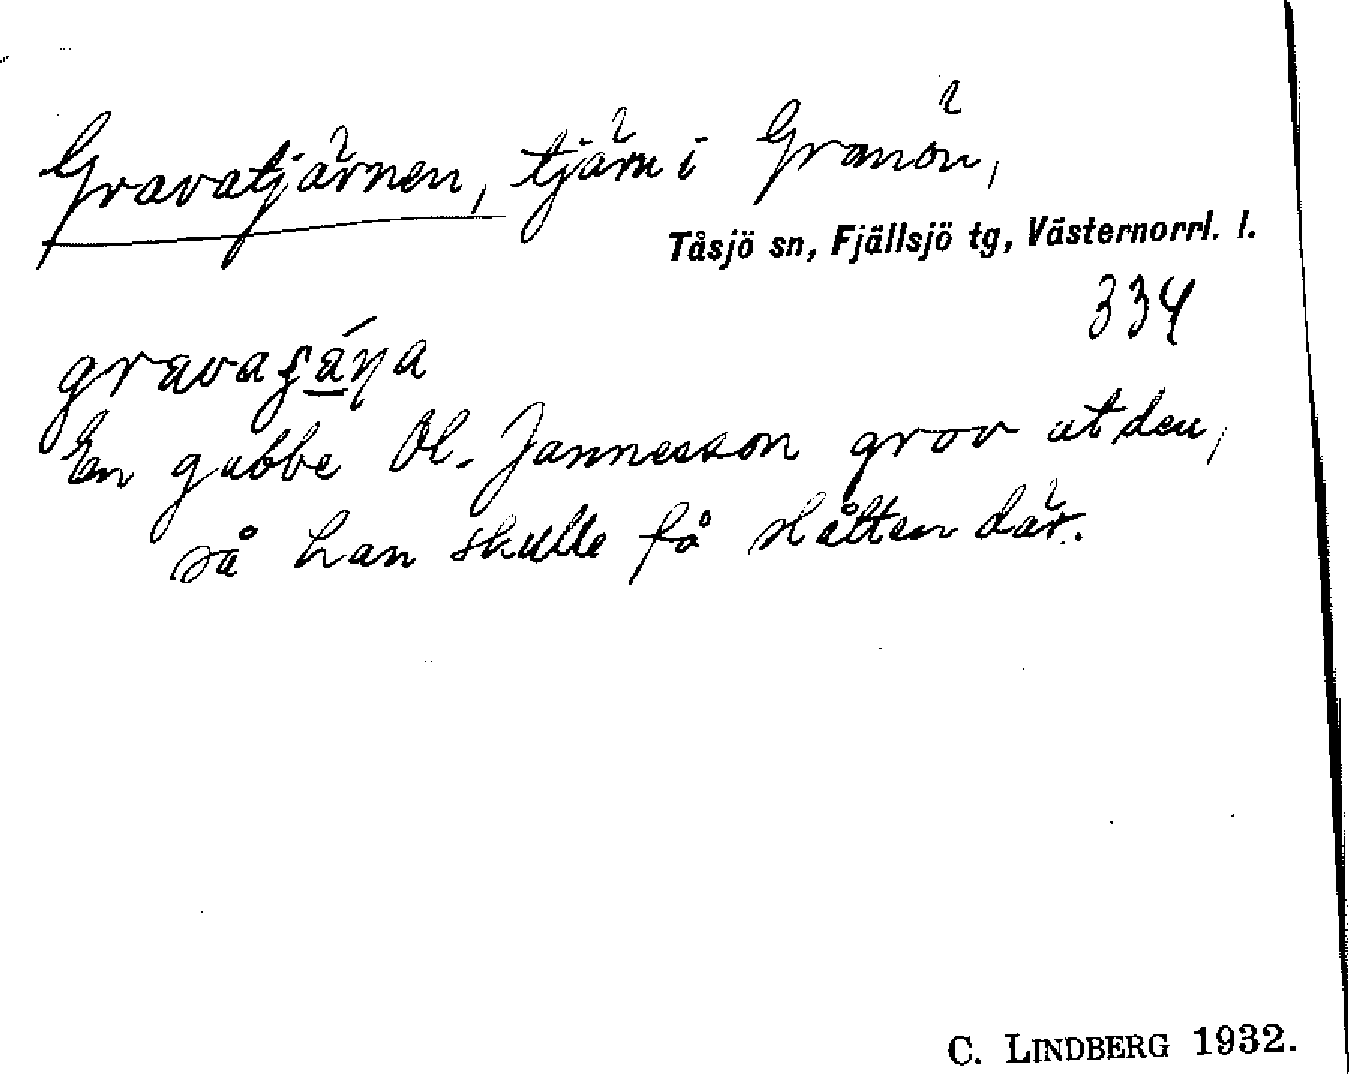 Gravatjärnen, tjärn i Granön,
Tåsjö sn, Fjällsjö tg, Västernorrl. l.
334
En gubbe Ol. Jannesson grov ut den,
så han skulle få slåtten där.
C. LINDBERG 1932.